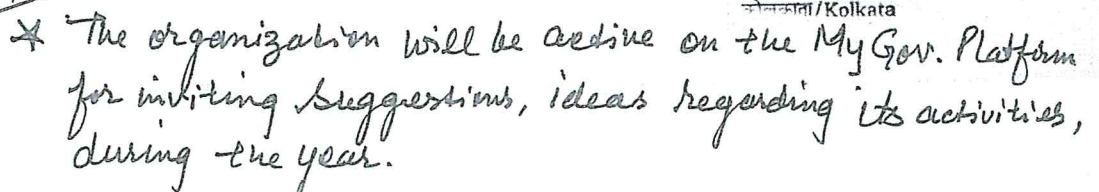 कोलकाता/Kolkata
* The organization will be active on the My Gov. Platform
for inviting suggestions, ideas regarding its activities,
during the year.